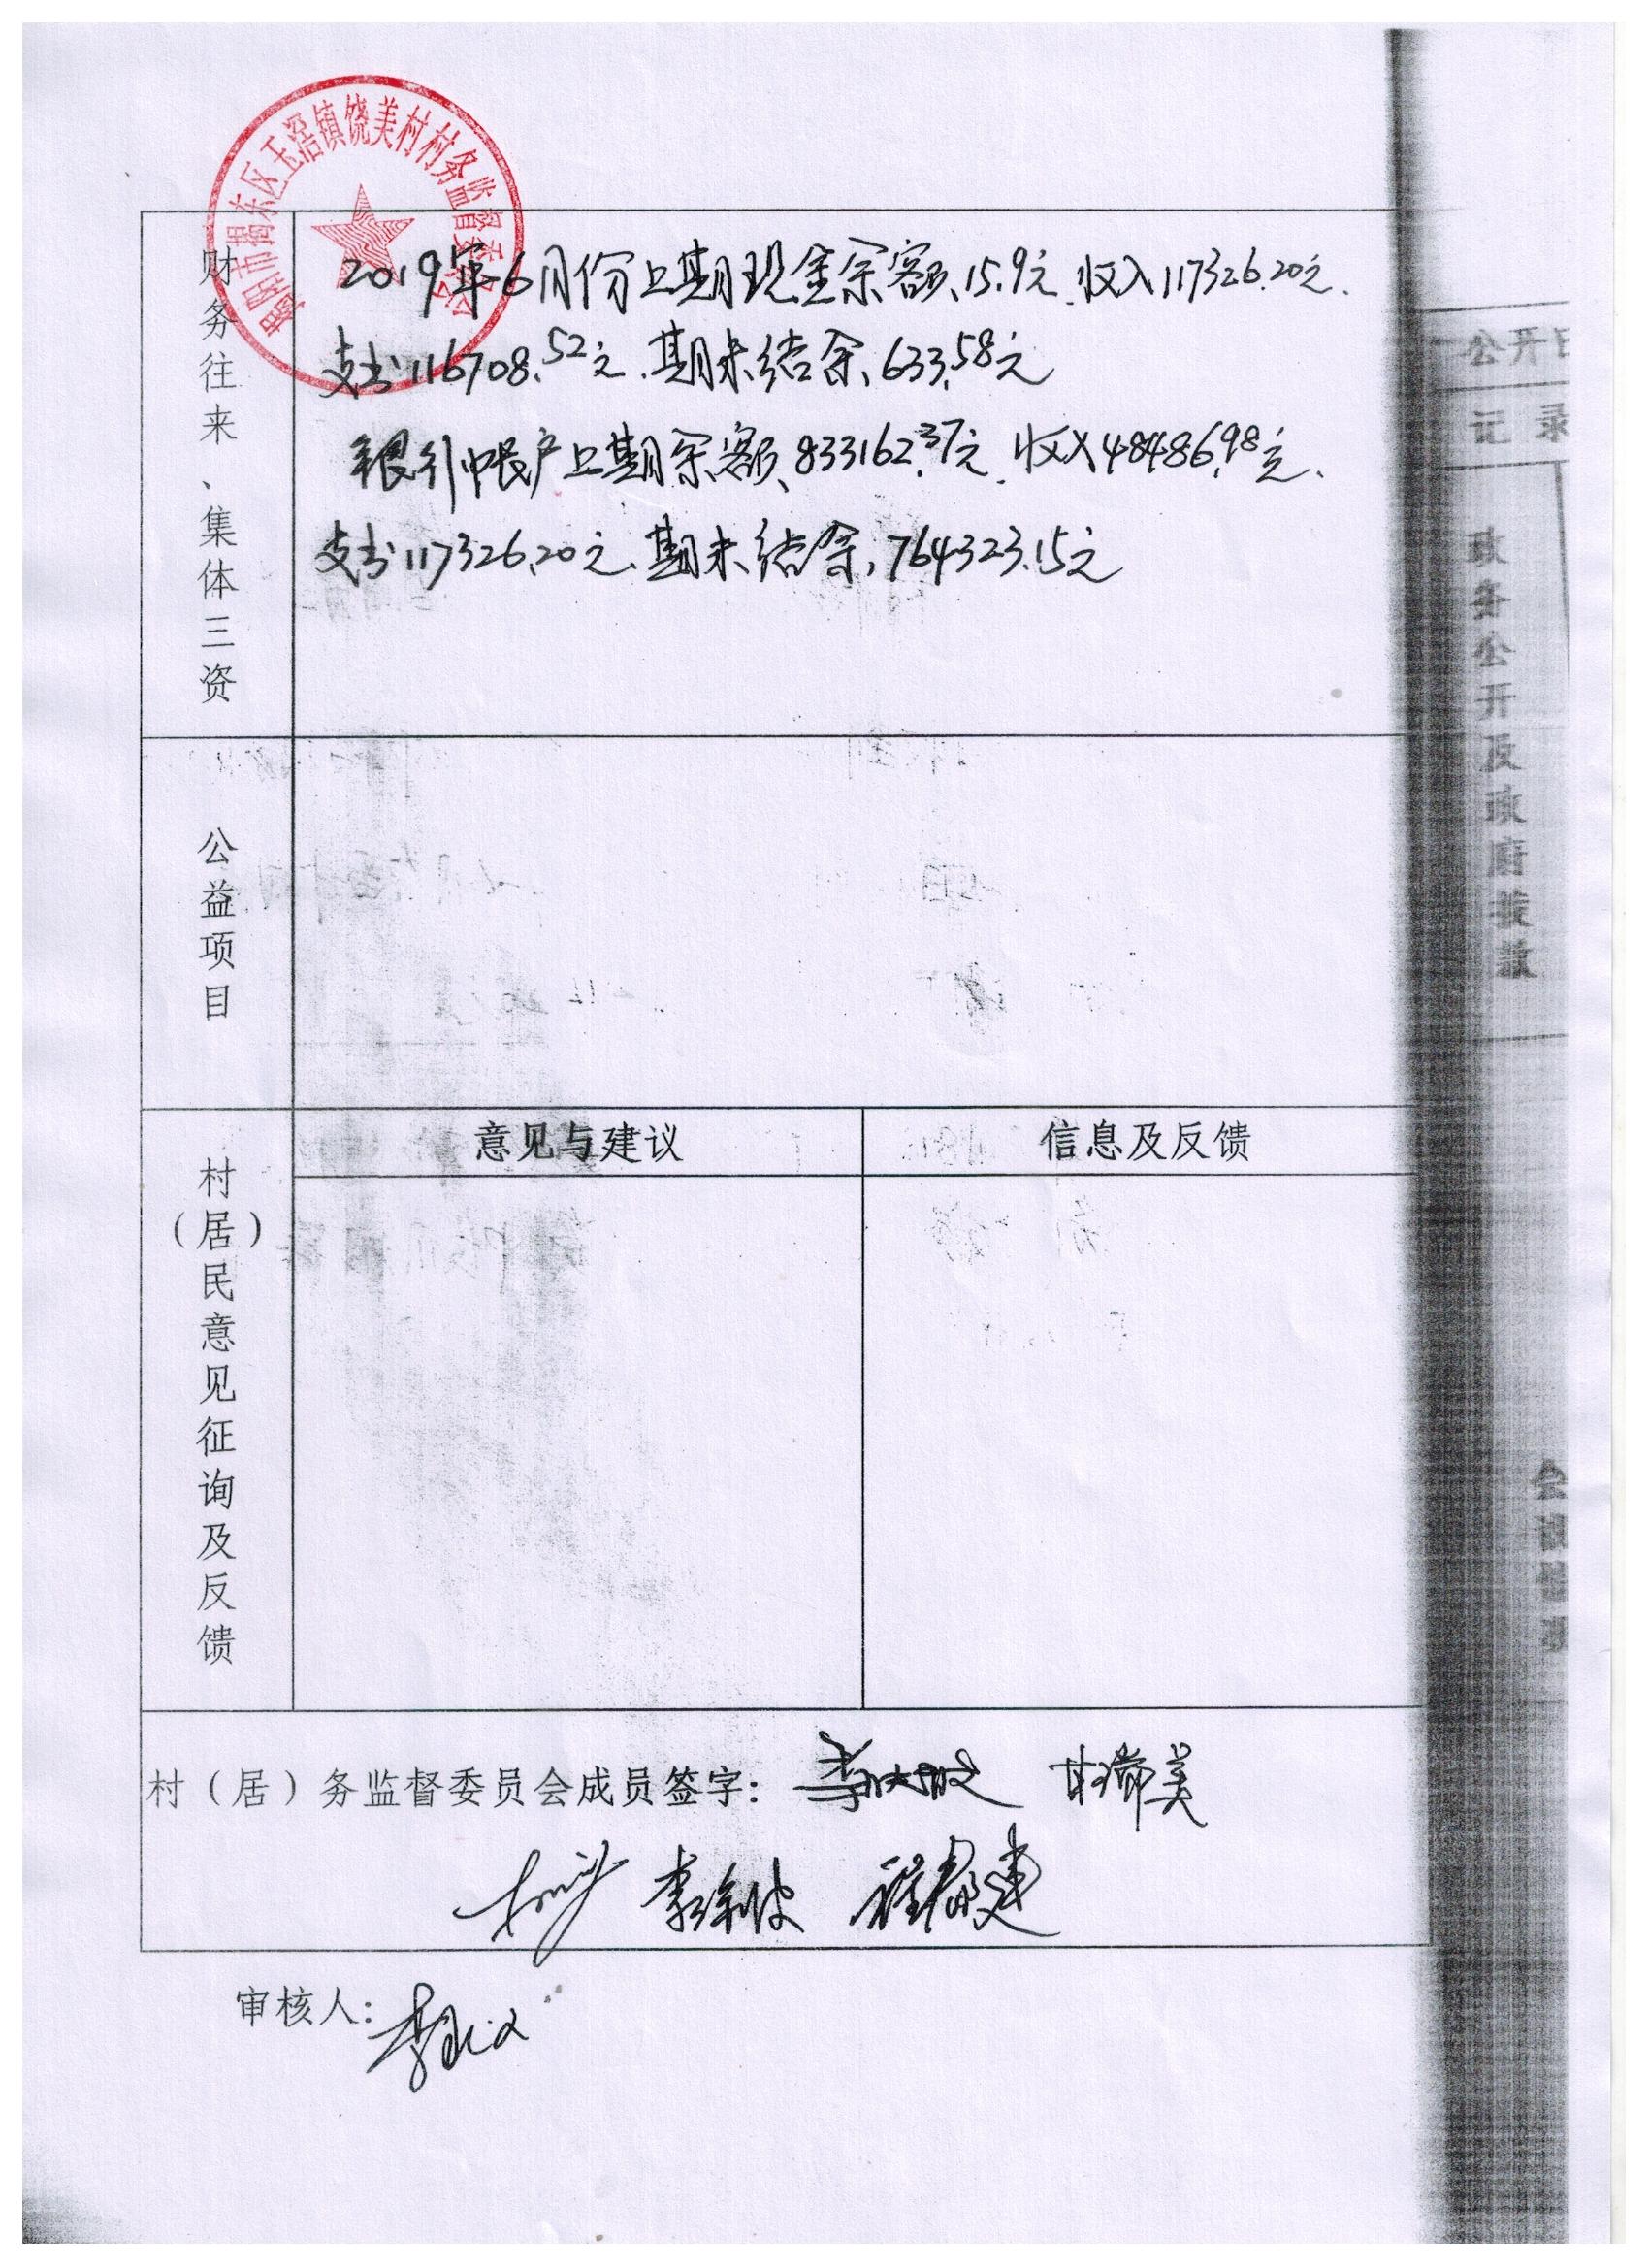 揭阳市揭东区玉滘镇饶美村村务监督委员会
财务往来、集体三资
2019年6月份上期现金余额、15.9元、收入117326.20元、
支出116708.52元、期末结余、633.58元
银行帐户上期余额、833162.37元、收入48486.98元、
支出117326.20元、期末结余、764323.15元
公益项目
村(居)民意见征询及反馈
意见与建议 信息及反馈
村(居)务监督委员会成员签字:
审核人:
公开日
记录
政务公开及政府